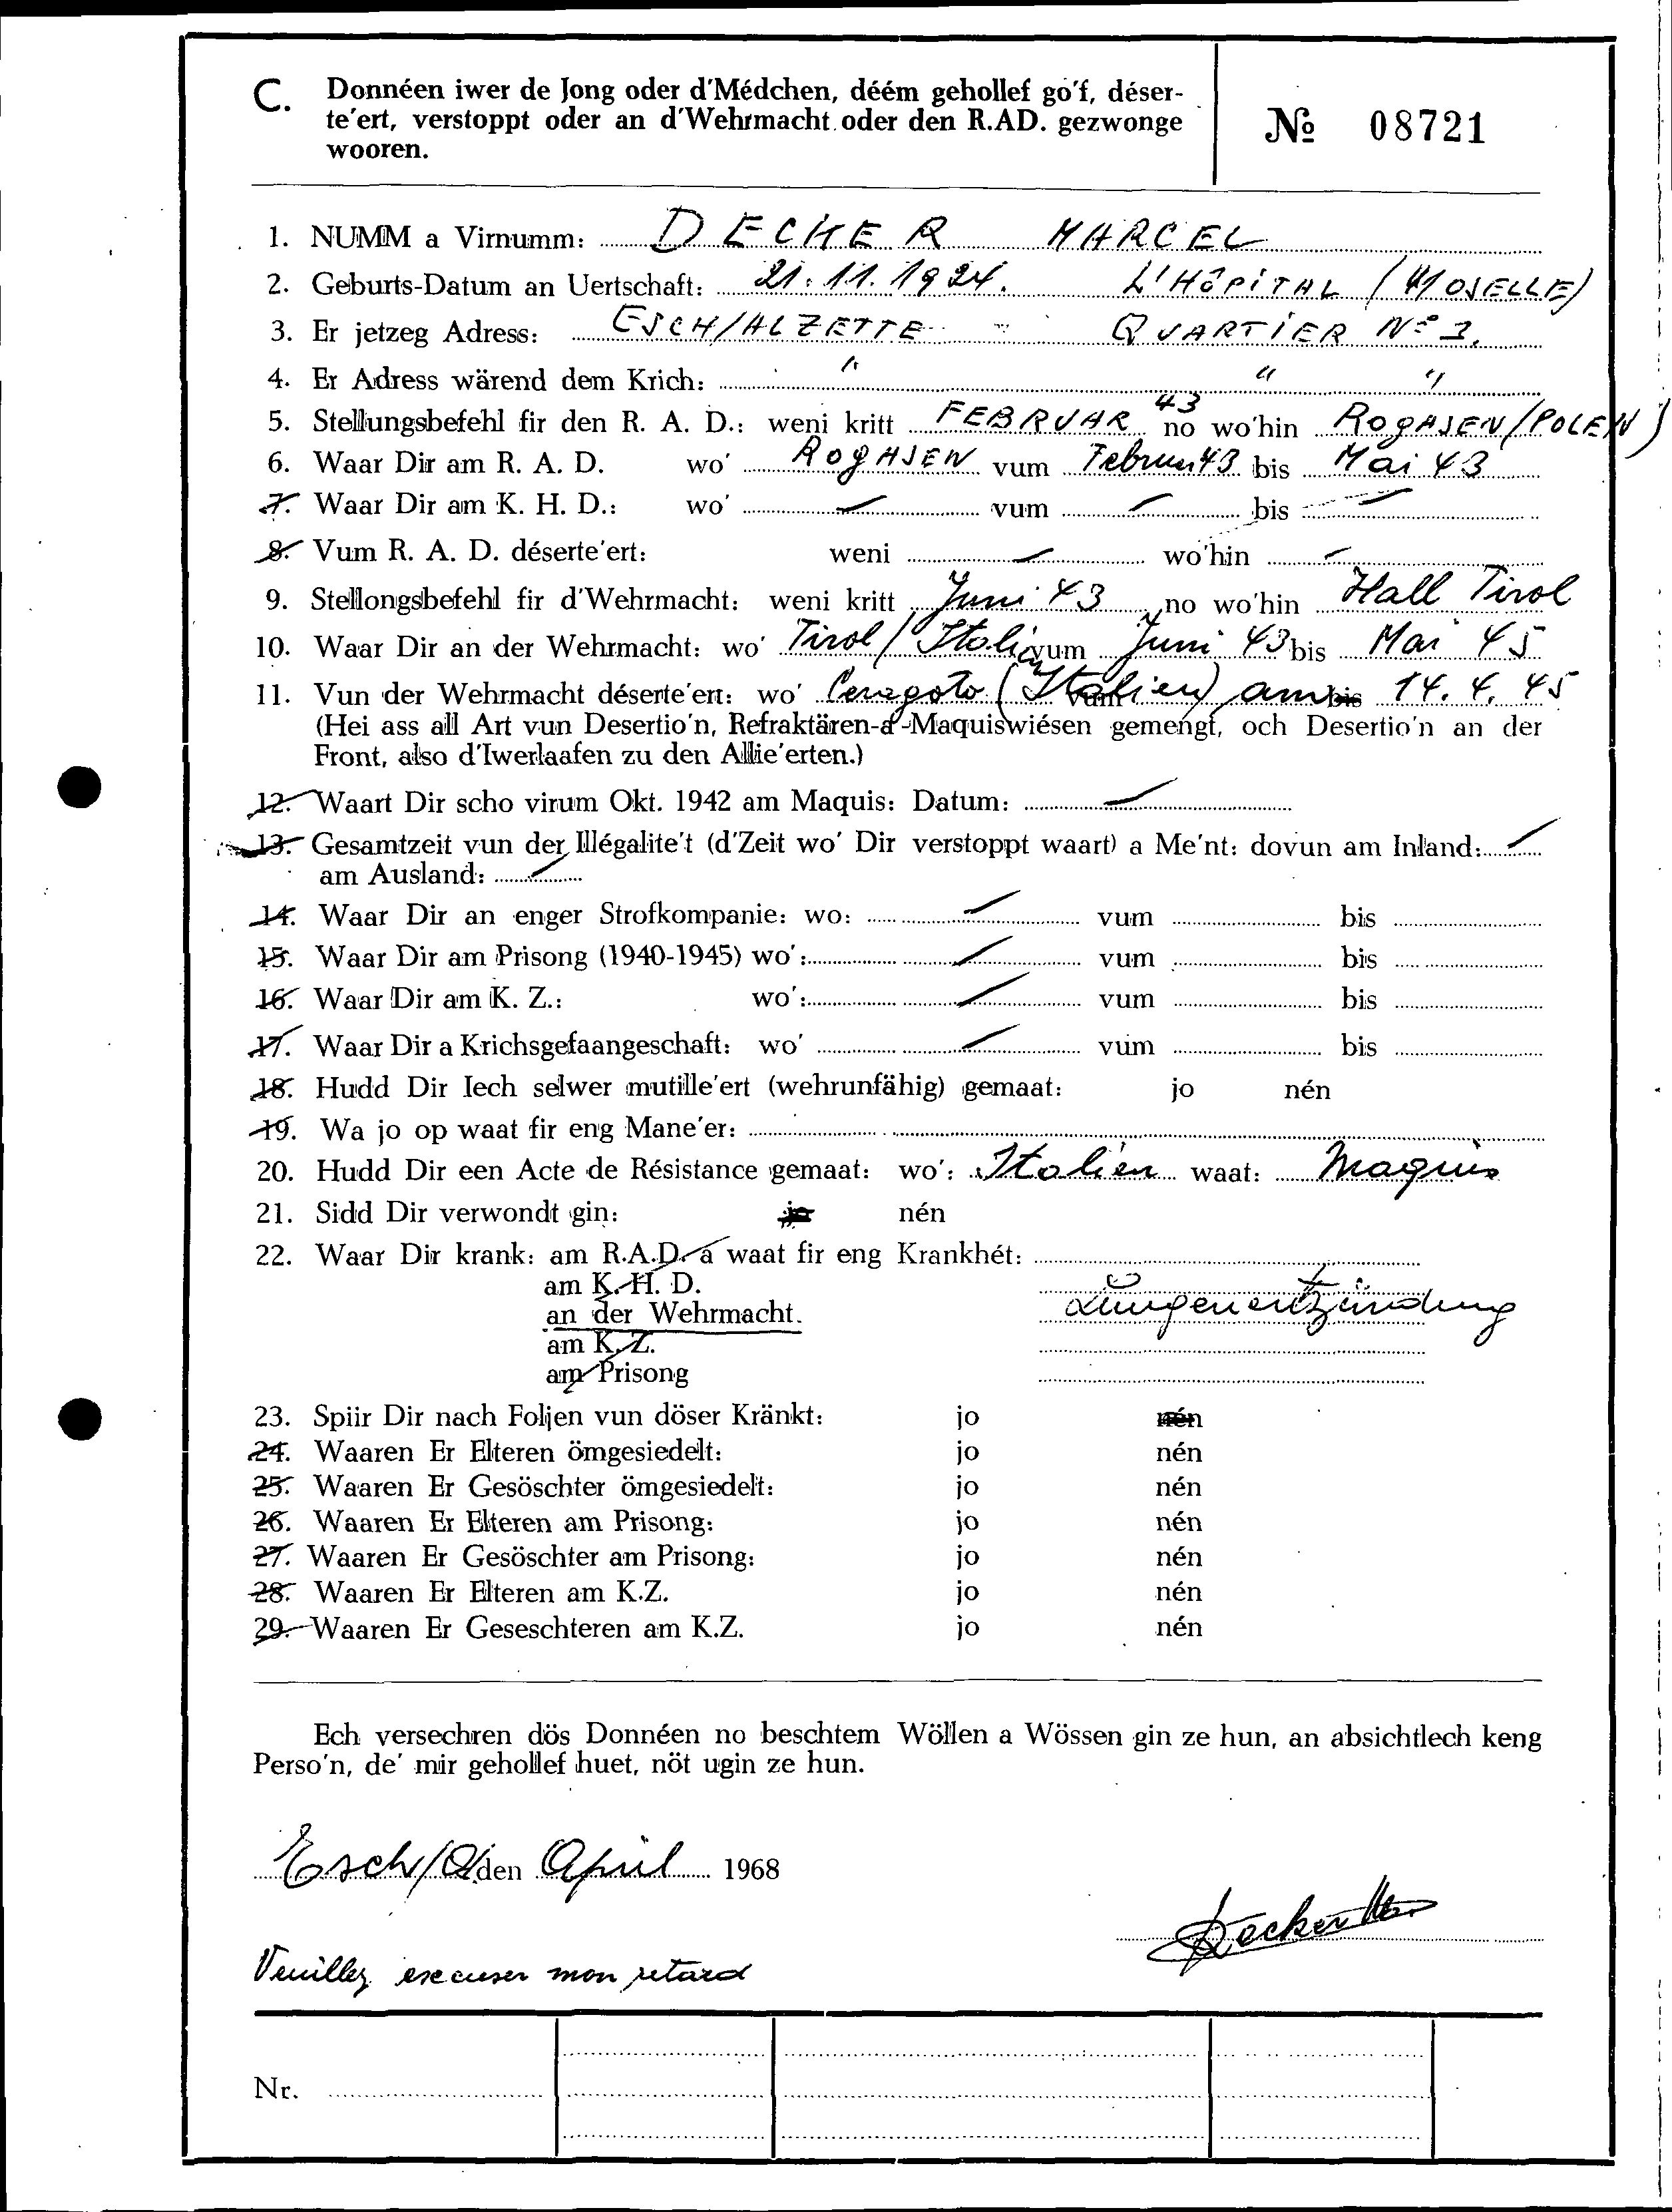 C. Donnéen iwer de Jong oder d'Médchen, déém gehollef go'f, déser-
te'ert, verstoppt oder an d'Wehrmacht oder den R.AD. gezwonge
wooren.
№ 08721
1. NUMM a Virnumm: DECKER MARCEL
2. Geburts-Datum an Uertschaft: 21.11.1924. L'HôPiTAL (MOSELLE)
3. Er jetzeg Adress: ESCH/ALZETTE - QUARTiER No 3.
4. Er Adress wärend dem Krich: " " "
5. Stellungsbefehl fir den R. A. D.: weni kritt FEBRUAR 43 no wo'hin ROgASEN/POLEN)
6. Waar Dir am R. A. D. wo' ROgASEN vum Februar 43 bis Mai 43
7. Waar Dir am K. H. D.: wo' vum bis
8. Vum R. A. D. déserte'ert: weni wo'hin
9. Stellongsbefehl fir d'Wehrmacht: weni kritt Juni 43 no wo'hin Hall Tirol
10. Waar Dir an der Wehrmacht: wo' Tirol/Italien vum Juni 43 bis Mai 45
11. Vun der Wehrmacht déserte'ert: wo' (Italien) vum am bis 14. 4. 45
(Hei ass all Art vun Desertio'n, Refraktären-a'-Maquiswiésen gemengt, och Desertio'n an der
Front, also d'Iwerlaafen zu den Allie'erten.)
12. Waart Dir scho virum Okt. 1942 am Maquis: Datum:
13. Gesamtzeit vun der Illégalite't (d'Zeit wo' Dir verstoppt waart) a Me'nt: dovun am Inland:
am Ausland:
14. Waar Dir an enger Strofkompanie: wo: vum bis
15. Waar Dir am Prisong (1940-1945) wo': vum bis
16. Waar Dir am K. Z.: wo': vum bis
17. Waar Dir a Krichsgefaangeschaft: wo' vum bis
18. Hudd Dir Iech selwer mutille'ert (wehrunfähig) gemaat: jo nén
19. Wa jo op waat fir eng Mane'er:
20. Hudd Dir een Acte de Résistance gemaat: wo': Italien waat: Maquis
21. Sidd Dir verwondt gin: jo nén
22. Waar Dir krank: am R.A.D. a waat fir eng Krankhét:
am K. H. D.
an der Wehrmacht. Lungenentzündung
am K. Z.
am Prisong
23. Spiir Dir nach Foljen vun döser Kränkt: jo nén
24. Waaren Er Elteren ömgesiedelt: jo nén
25. Waaren Er Gesöschter ömgesiedelt: jo nén
26. Waaren Er Elteren am Prisong: jo nén
27. Waaren Er Gesöschter am Prisong: jo nén
28. Waaren Er Elteren am K.Z. jo nén
29. Waaren Er Geseschteren am K.Z. jo nén
Ech versechren dös Donnéen no beschtem Wöllen a Wössen gin ze hun, an absichtlech keng
Perso'n, de' mir gehollef huet, nöt ugin ze hun.
Esch/A den April 1968
Decker
Veuillez excuser mon retard
Nr.